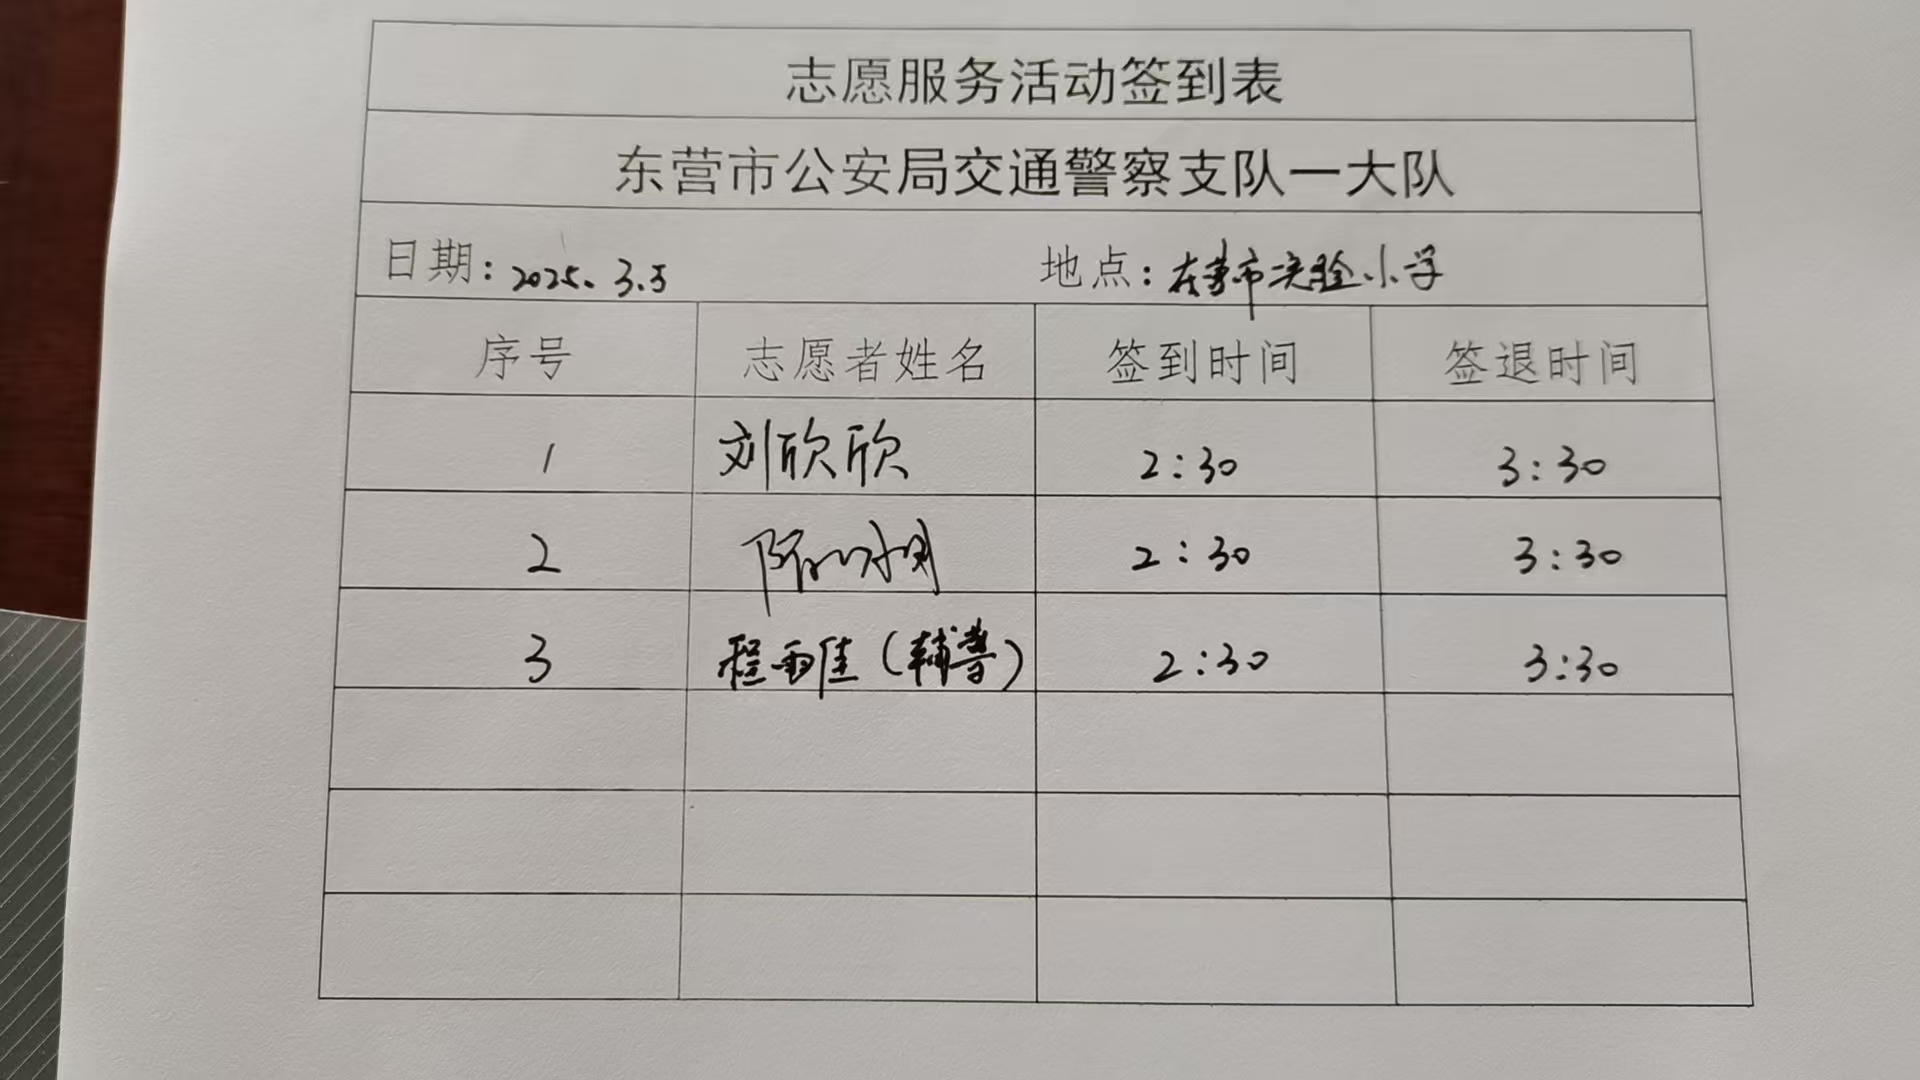 志愿服务活动签到表
东营市公安局交通警察支队一大队
日期：2025.3.5 地点：东营市实验小学
序号 志愿者姓名 签到时间 签退时间
1 刘欣欣 2:30 3:30
2 2:30 3:30
3 程雨佳（辅警） 2:30 3:30